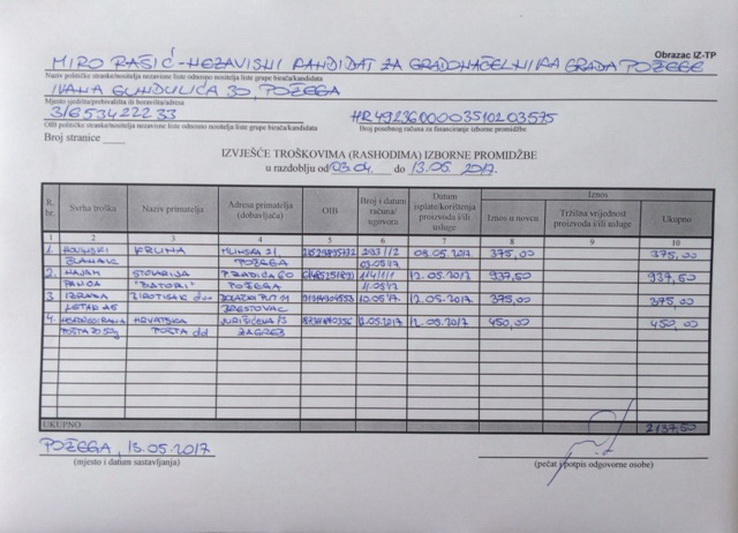 Obrazac IZ-TP
MIRO RAŠIĆ - NEZAVISNI KANDIDAT ZA GRADONAČELNIKA GRADA POŽEGE
Naziv političke stranke/nositelja nezavisne liste odnosno nositelja liste grupe birača/kandidata
IVANA GUNDULIĆA 30, POŽEGA
Mjesto sjedišta/prebivališta ili boravišta/adresa
31653422233 HR4923600003510203575
OIB političke stranke/nositelja nezavisne liste odnosno nositelja liste grupe birača/kandidata Broj posebnog računa za financiranje izborne promidžbe
Broj stranice
IZVJEŠĆE TROŠKOVIMA (RASHODIMA) IZBORNE PROMIDŽBE
u razdoblju od 03.04. do 13.05. 2017.
R. br. Svrha troška Naziv primatelja Adresa primatelja (dobavljača) OIB Broj i datum računa/ugovora Datum isplate/korištenja proizvoda i/ili usluge Iznos
Iznos u novcu Tržišna vrijednost proizvoda i/ili usluge Ukupno
1 2 3 4 5 6 7 8 9 10
1. NOVINSKI KRUNA MLINSKA 21 09.05.2017 375,00 375,00
ČLANAK POŽEGA
2. NAJAM STOLARIJA 12.05.2017 937,50 937,50
PANOA "ZLATORI" POŽEGA
3 IZRADA doo 10.05.'17 12.05.2017 375,00 375,00
LETAKA BRESTOVAC
4. HRVATSKA JURIŠIĆEVA 13 12.05.2017 12.05.2017 450,00 450,00
POŠTA dd ZAGREB
UKUPNO 2137,50
POŽEGA, 13.05.2017
(mjesto i datum sastavljanja) (pečat i potpis odgovorne osobe)